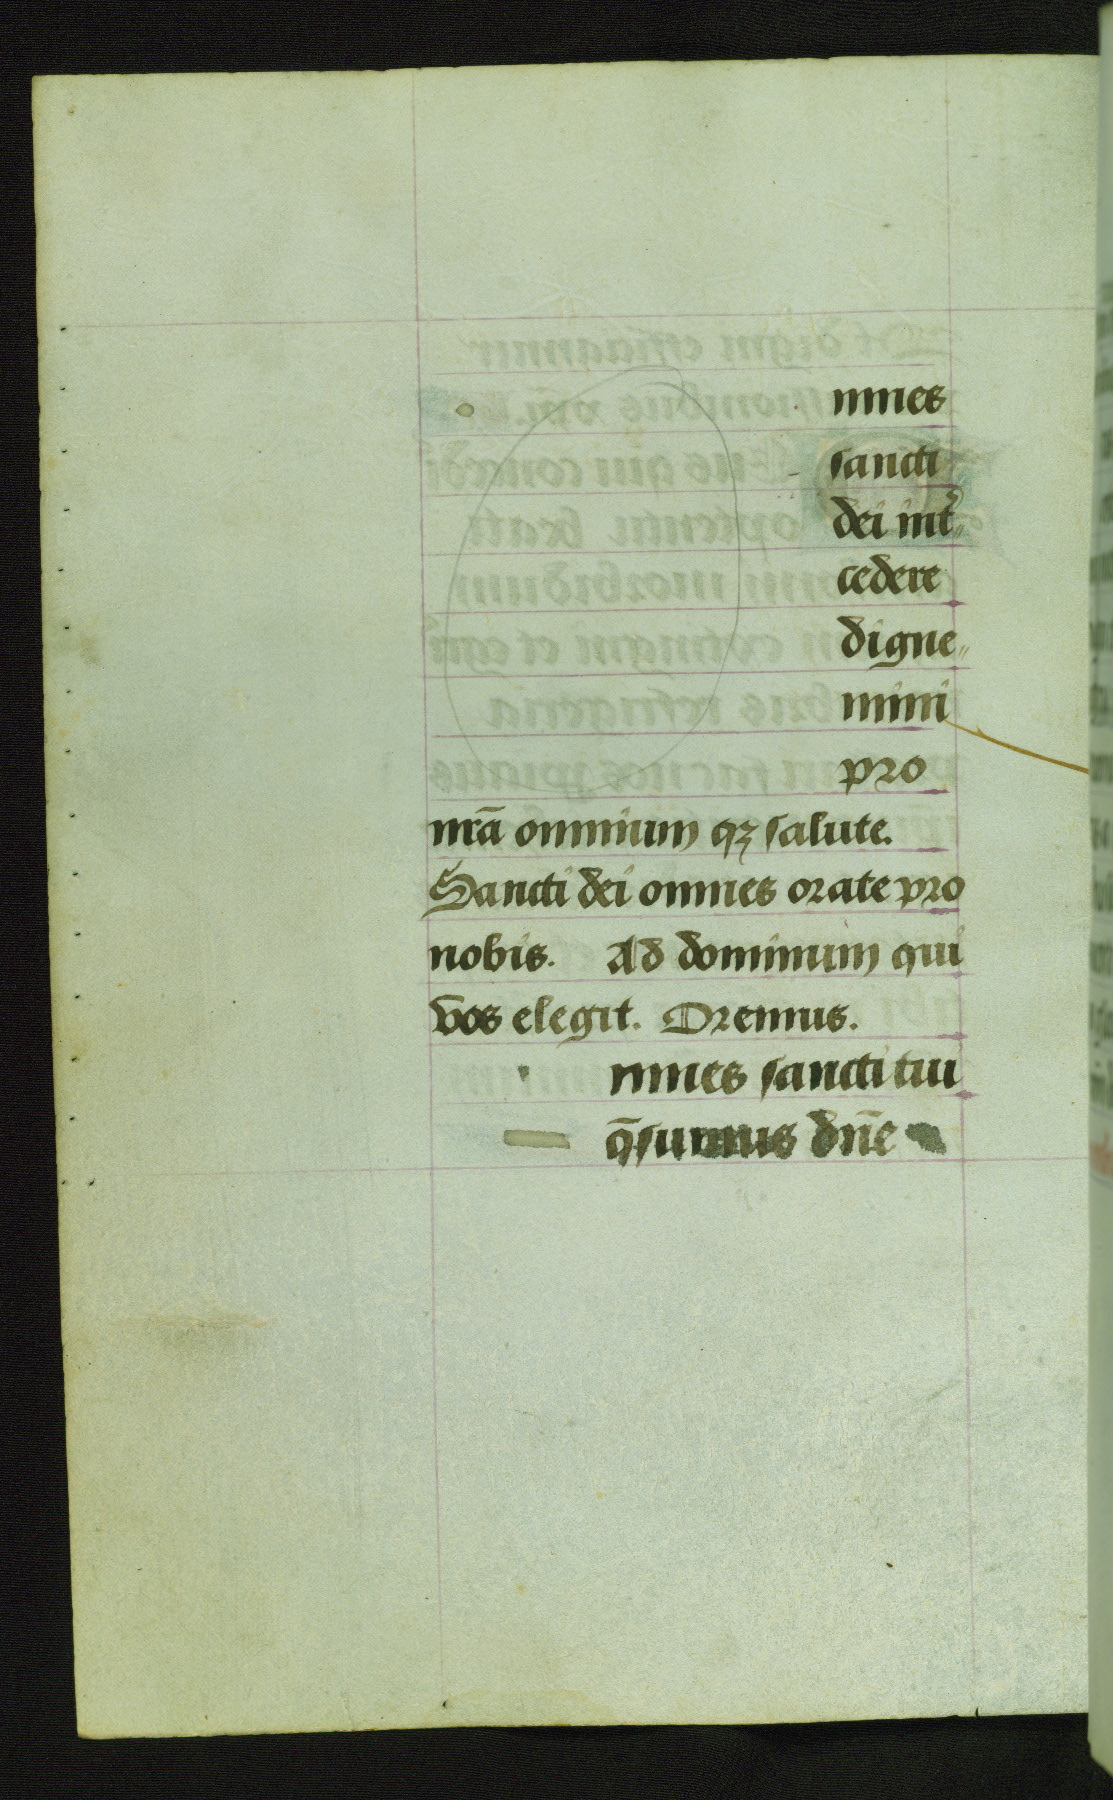 mnes
sancti
dei int᷑
cedere
digne〃
mini
pro
nr̄a omnium qꝫ salute.
Sancti dei omnes orate pro
nobis. Ad dominum qui
vos elegit. Oremus.
mnes sancti tui
q̄sumus dn̄e